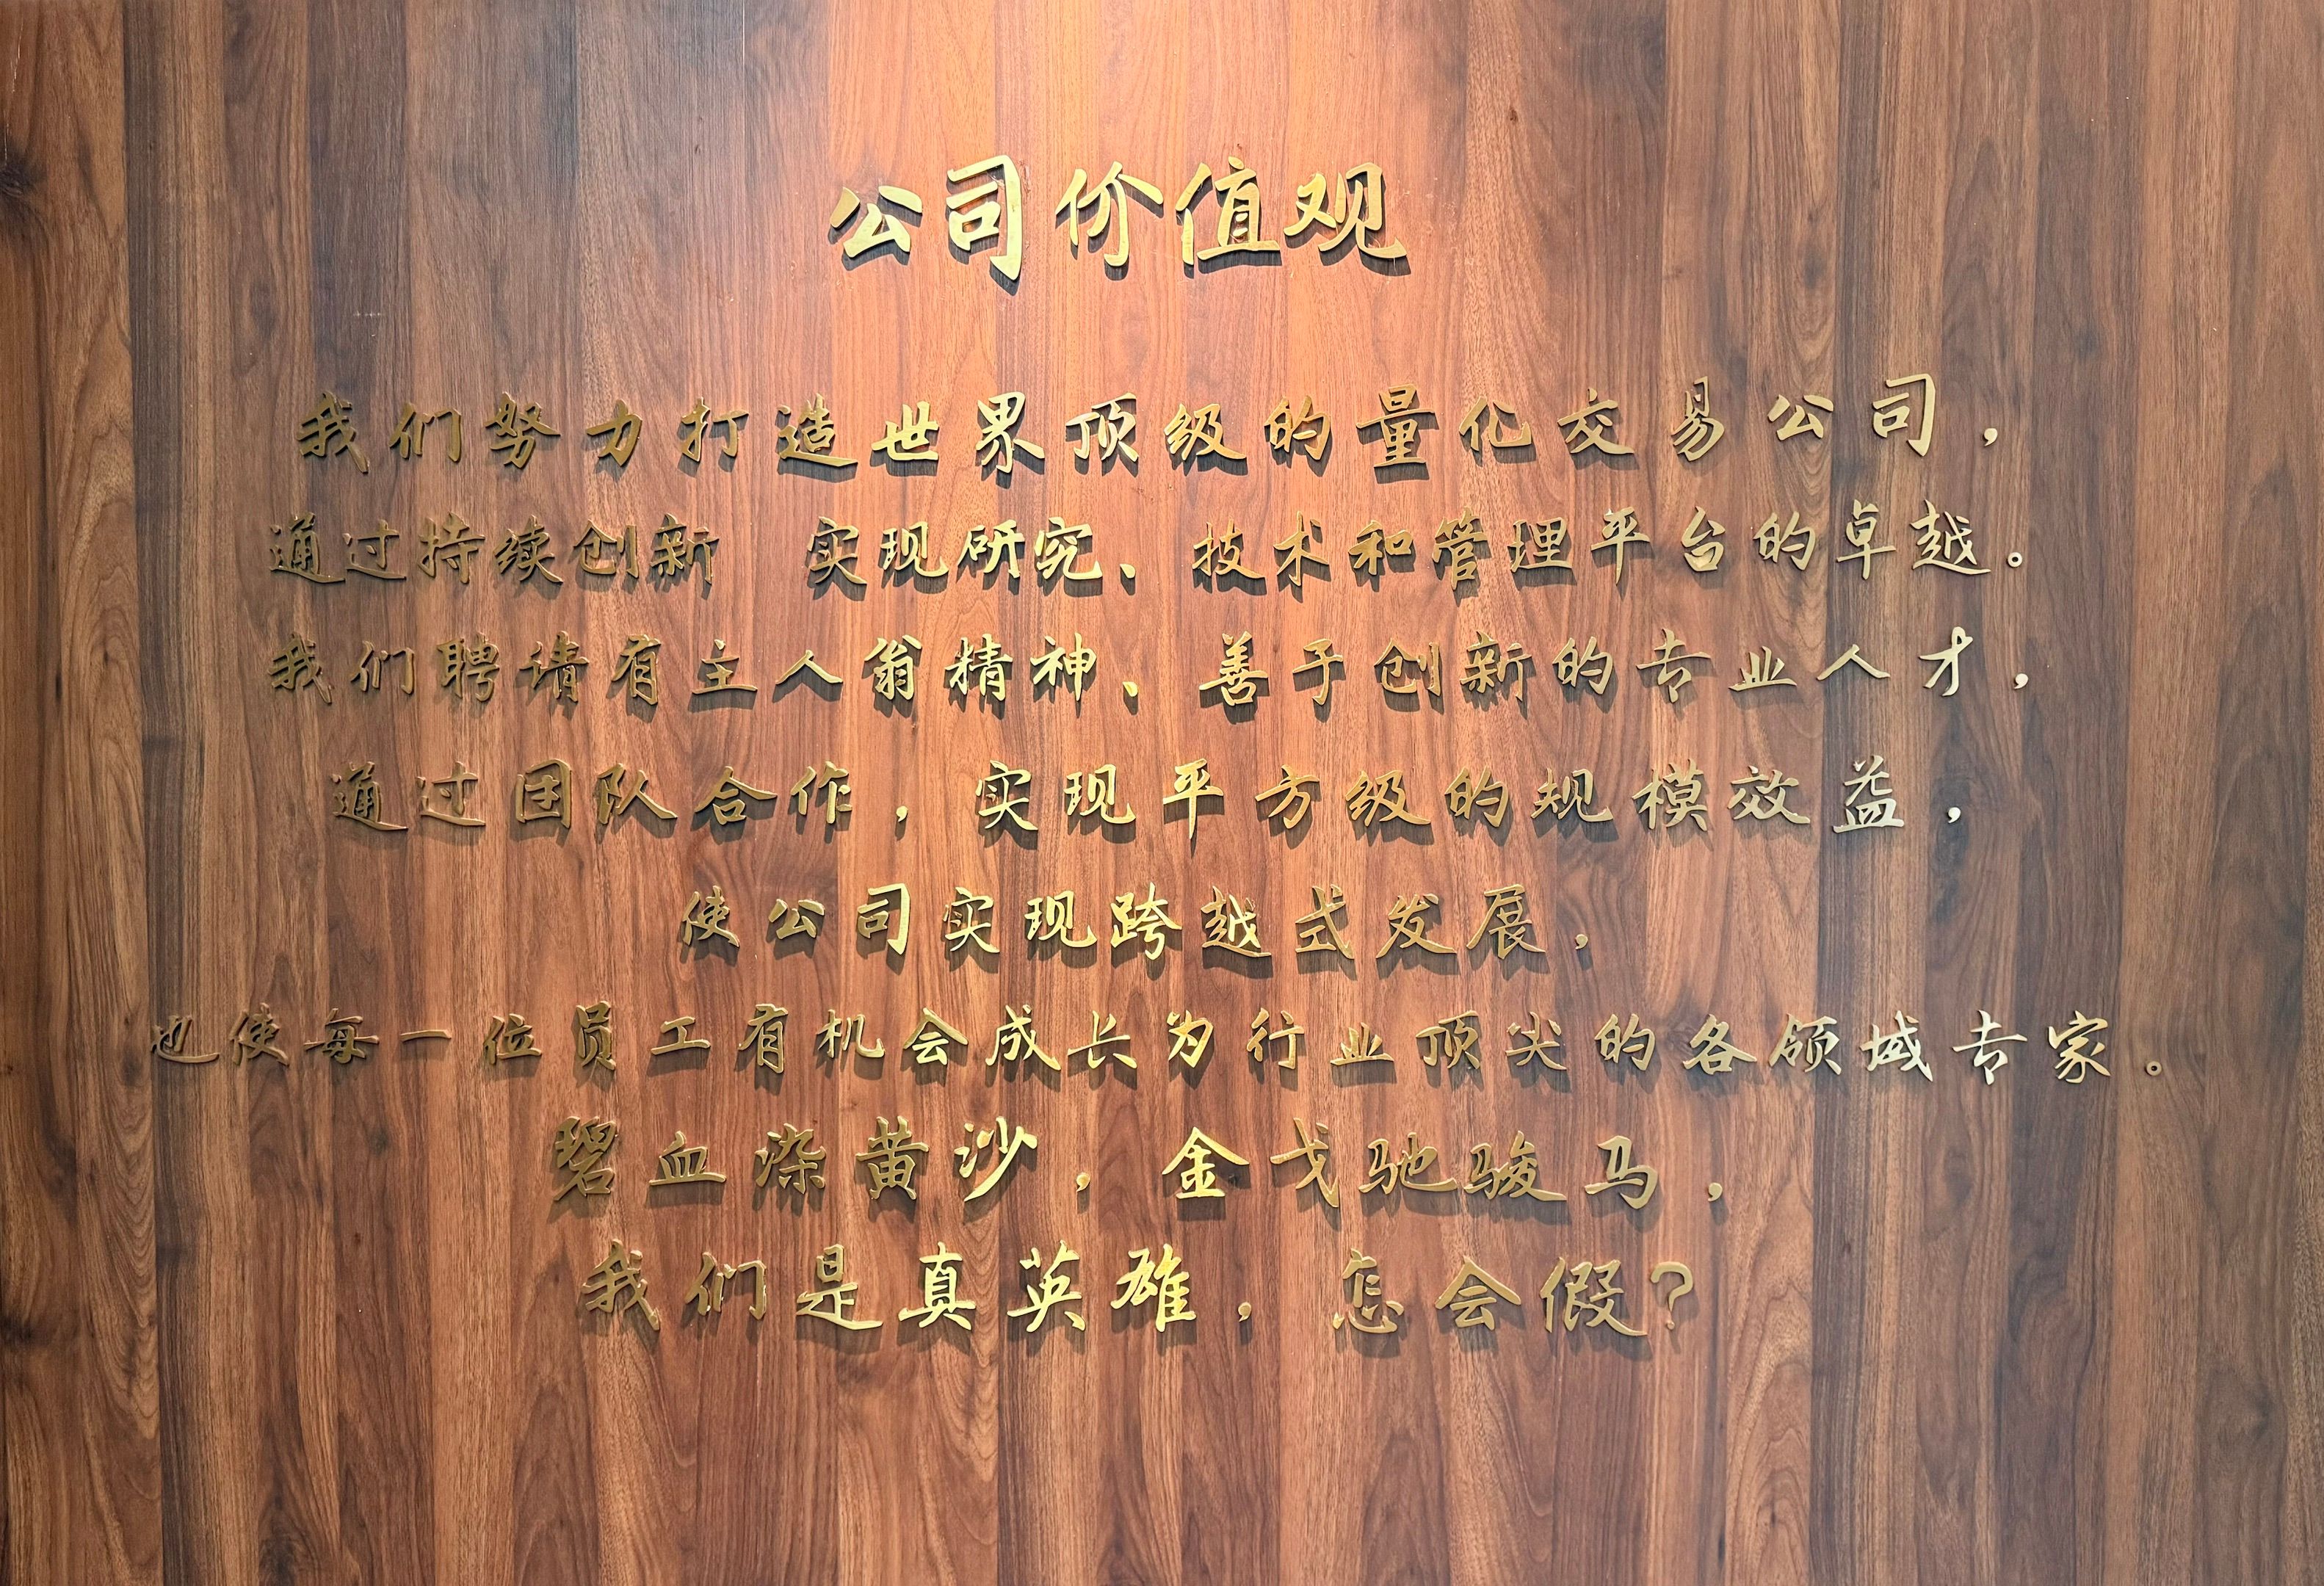 公司价值观
我们努力打造世界顶级的量化交易公司，
通过持续创新 实现研究、技术和管理平台的卓越。
我们聘请有主人翁精神、善于创新的专业人才，
通过团队合作，实现平方级的规模效益，
使公司实现跨越式发展，
也使每一位员工有机会成长为行业顶尖的各领域专家。
碧血染黄沙，金戈驰骏马，
我们是真英雄，怎会假？